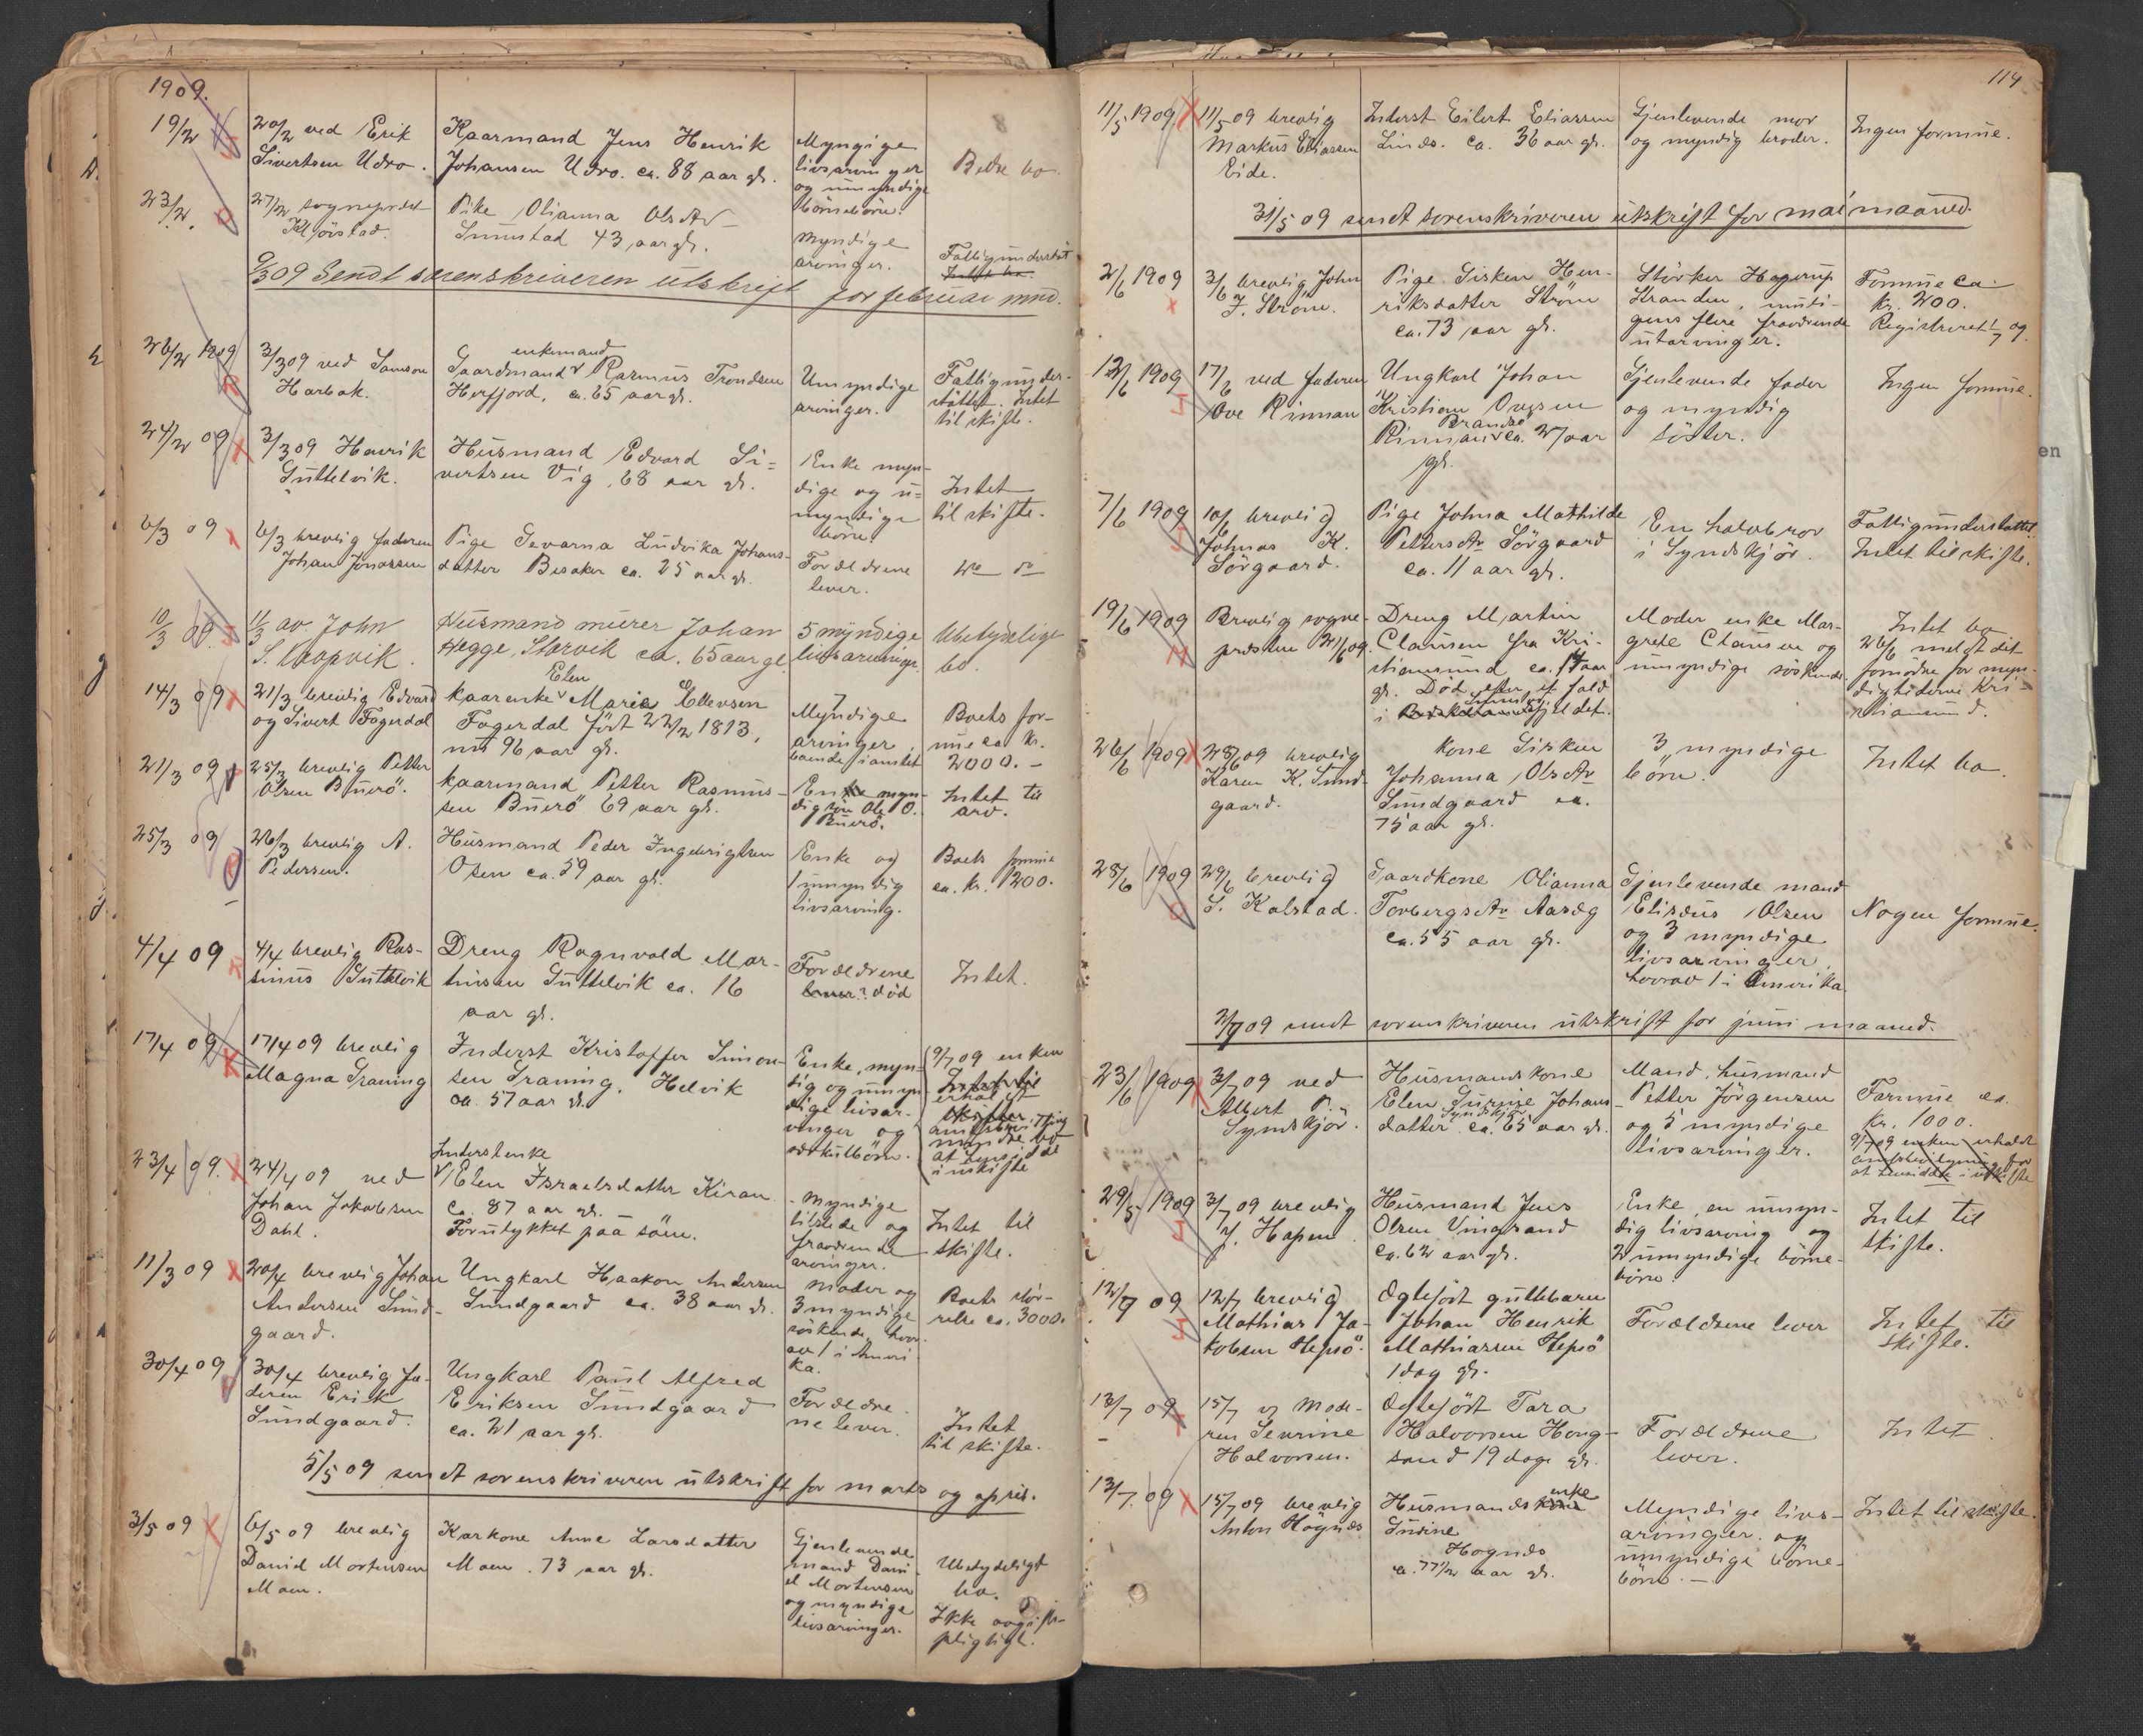 1909.
19/2
20/2 ved Erik
Sivertsen Udro.
Kaarmand Jens Henrik
Johansen Udro. ca. 88 aar gl.
Myngige
livsarvinger
og umyndige
börnebörn.
Bedre bo.
23/2.
27/2 sogneprest
Kljöistad.
Pike Olianna Olsdtr
Sumstad 43 aar gl.
Myndige
arvinger.
Fattigunderstöt
9/3 09 Sendt sorenskriveren utskrift for februar mnd.
26/2 1909
3/3 09 ved Samson
Harbak.
enkemand
Gaardmand Rasmus Trondsen
Herfjord, ca. 65 aar gl.
Umyndige
arvinger.
Fattigunder-
støttet. Intet
til skifte.
24/2 09
3/3 09 Henrik
Guttelvik.
Husmand Edvard Si-
vertsen Vig, 68 aar gl.
Enke myn-
dige og u-
myndige
börn.
Intet
til skifte.
6/3 09
6/3 brevlig faderen
Johan Jonassen
Pige Gevarna Ludvika Johans-
datter Besaker ca. 25 aar gl.
Forældrene
lever.
10/3 09.
11/3 av John
S. Hopvik.
Husmand murer Johan
Hegge, Storvik ca. 65 aar gl.
5 myndige
livsarvinger.
Ubetydelige
bo.
14/3 09
21/3 brevlig Edvard
og Sivert Fagerdal
Elen
kaarenke Maria Ellevsen
Fagerdal födt 22/2 1813,
nu 96 aar gl.
7
Myndige
arvinger,
boende i amtet
Boets for-
mue ca kr.
2000.-
21/3 09
25/3 brevlig Petter
Olsen Buerö.
kaarmand Petter Rasmus-
sen Buerö 69 aar gl.
Enke myn-
dig sön Ole O.
Buerö.
Intet til
arv.
25/3 09
26/3 brevlig A.
Pedersen.
Husmand Peder Ingebrigtsen
Osen ca. 59 aar gl.
Enke og
1 umyndig
livsarving.
Boets formue
ca. kr. 1200.
4/4 09
4/4 brevlig Ras-
mus Guttelvik
Dreng Ragnvald Mar-
tinsen Guttelvik ca. 16
aar gl.
Forældrene
lever? död
Intet.
17/4 09
17/4 09 brevlig
Magna Graning
Inderst Kristoffer Simon-
sen Graning. Helvik
ca. 57 aar gl.
Enke, myn-
dig og umyn-
dige livsar-
vinger og
særkulbörn.
9/7 09 enken
erholdt
amtsbevilgning
at hensidde
i uskifte
23/4 09.
24/4 09 ved
Johan Jakobsen
Dahl.
Inderstenke
Elen Israelsdatter Kiran
ca. 87 aar gl.
Forulykket paa söen.
Myndige
tilstede og
fraværende
arvinger.
Intet til
skifte.
11/3 09
20/4 brevlig Johan
Andersen Sund-
gaard.
Ungkarl Haakon Andersen
Sundgaard ca. 38 aar gl.
moder og
3 myndige
söskende, hvor-
av 1 i Ameri-
ka.
Boets stör-
relse ca. 3000.
30/4 09
30/4 brevlig fa-
deren Erik
Sundgaard.
Ungkarl Paul Alfred
Eriksen Sundgaard
ca. 21 aar gl.
Forældre-
ne lever.
Intet
til skifte.
5/5 09 sendt sorenskriveren utskrift for marts og april.
3/5 09
6/5 09 brevlig
David Mortensen
Moen.
Karkone Anne Larsdatter
Moen. 73 aar gl.
Gjenlevende
mand Dani-
el Mortensen
og myndige
livsarvinger.
Ubetydeligt
bo.
Ikke avgifts-
pligtigt.
114
11/5 1909
11/5 09 brevlig
Markus Eliassen
Eide.
Inderst Eilert Eliassen
Linds. ca. 36 aar gl.
Gjenlevende mor
og myndig broder.
Ingen formue.
31/5 09 sendt sorenskriveren utskrift for mai maaned.
2/6 1909
3/6 brevlig John
J. Ström.
Pige Sisken Hen-
riksdatter Ström
ca. 73 aar gl.
Störker Hagerup
Stranden, muli-
gens flere fraværende
utarvinger.
Formue ca.
kr. 200.
Registreret 1/7 09
12/6 1909
17/6 ved faderen
Ove Rinnan
Ungkarl Johan
Kristian Ovesen
Brandsö
Rinnan ca. 27 aar
gl.
Gjenlevende fader
og myndig
söster.
Ingen formue.
7/6 1909
10/6 brevlig
Johnas K.
Sörgaard.
Pige Johna Mathilde
Pettersdtr Sörgaard
ca. 11 aar gl.
En halvbror
i Syndskjör.
Fattigunderstöttet.
Intet til skifte.
19/6 1909
Brevlig sogne-
presten 21/6 09.
Dreng Martin
Clausen fra Kri-
stiansund ca. 14 aar
gl. Död efter et fald
i fjeldet.
Moder enke Mar-
grete Clausen og
umyndige söskende.
Intet bo
26/6 meldt det
fornödne for myn-
dighederne Kri-
stiansund.
26/6 1909
28/6 09 brevlig
Karen K. Sund-
gaard.
kone Sisken
Johanna Olsdtr
Sundgaard ca.
75 aar gl.
3 myndige
börn.
Intet bo.
28/6 1909
29/6 brevlig
S. Kalstad.
Gaardkone Olianna
Torbergsdtr Aaseg
ca. 55 aar gl.
Gjenlevende mand
Elisæus Olsen
og 3 myndige
livsarvinger,
hvorav 1 i Amerika.
Nogen formue.
2/7 09 sendt sorenskriveren utskrift for juni maaned.
23/6 1909
3/7 09 ved
Albert P.
Syndskjör.
Husmandskone
Elen Gurine Johans-
Syndskjör
datter ca. 65 aar gl.
Mand, husmand
Petter Jörgensen
og 5 myndige
livsarvinger.
Formue ca.
kr. 1000.
9/7 09 enken erholdt
amtsbevilgning for
at hensidde i uskifte
29/5 1909
3/7 09 brevlig
J. Hapen.
Husmand Jens
Olsen Vingsand
ca. 62 aar gl.
Enke, en umyn-
dig livsarving og
2 umyndige börne-
börn.
Intet til
skifte.
12/7 09
12/7 brevlig
Mathias Ja-
kobsen Hepsö.
Ogtefödt guttebarn
Johan Henrik
Mathiassen Hepsö
1 dag gl.
Forældrene lever
Intet til
skifte.
13/7 09
15/7 v/ Mode-
ren Sevrine
Halvorsen.
Ogtefödt Tara
Halvorsen Hong-
sand 19 dage gl.
Forældrene
lever.
Intet.
13/7. 09
15/7 09 brevlig
Anton Högnæs
enke
Husmandskone
Gurine
Hognæs
ca. 77 1/2 aar gl.
Myndige livs-
arvinger og
umyndige börne-
börn.-
Intet til skifte.